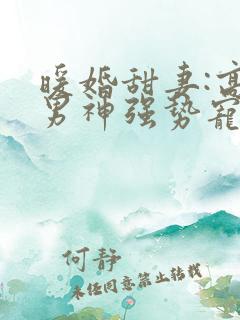 暖婚甜妻:高
男神强势宠
何静
未经同意禁止转载